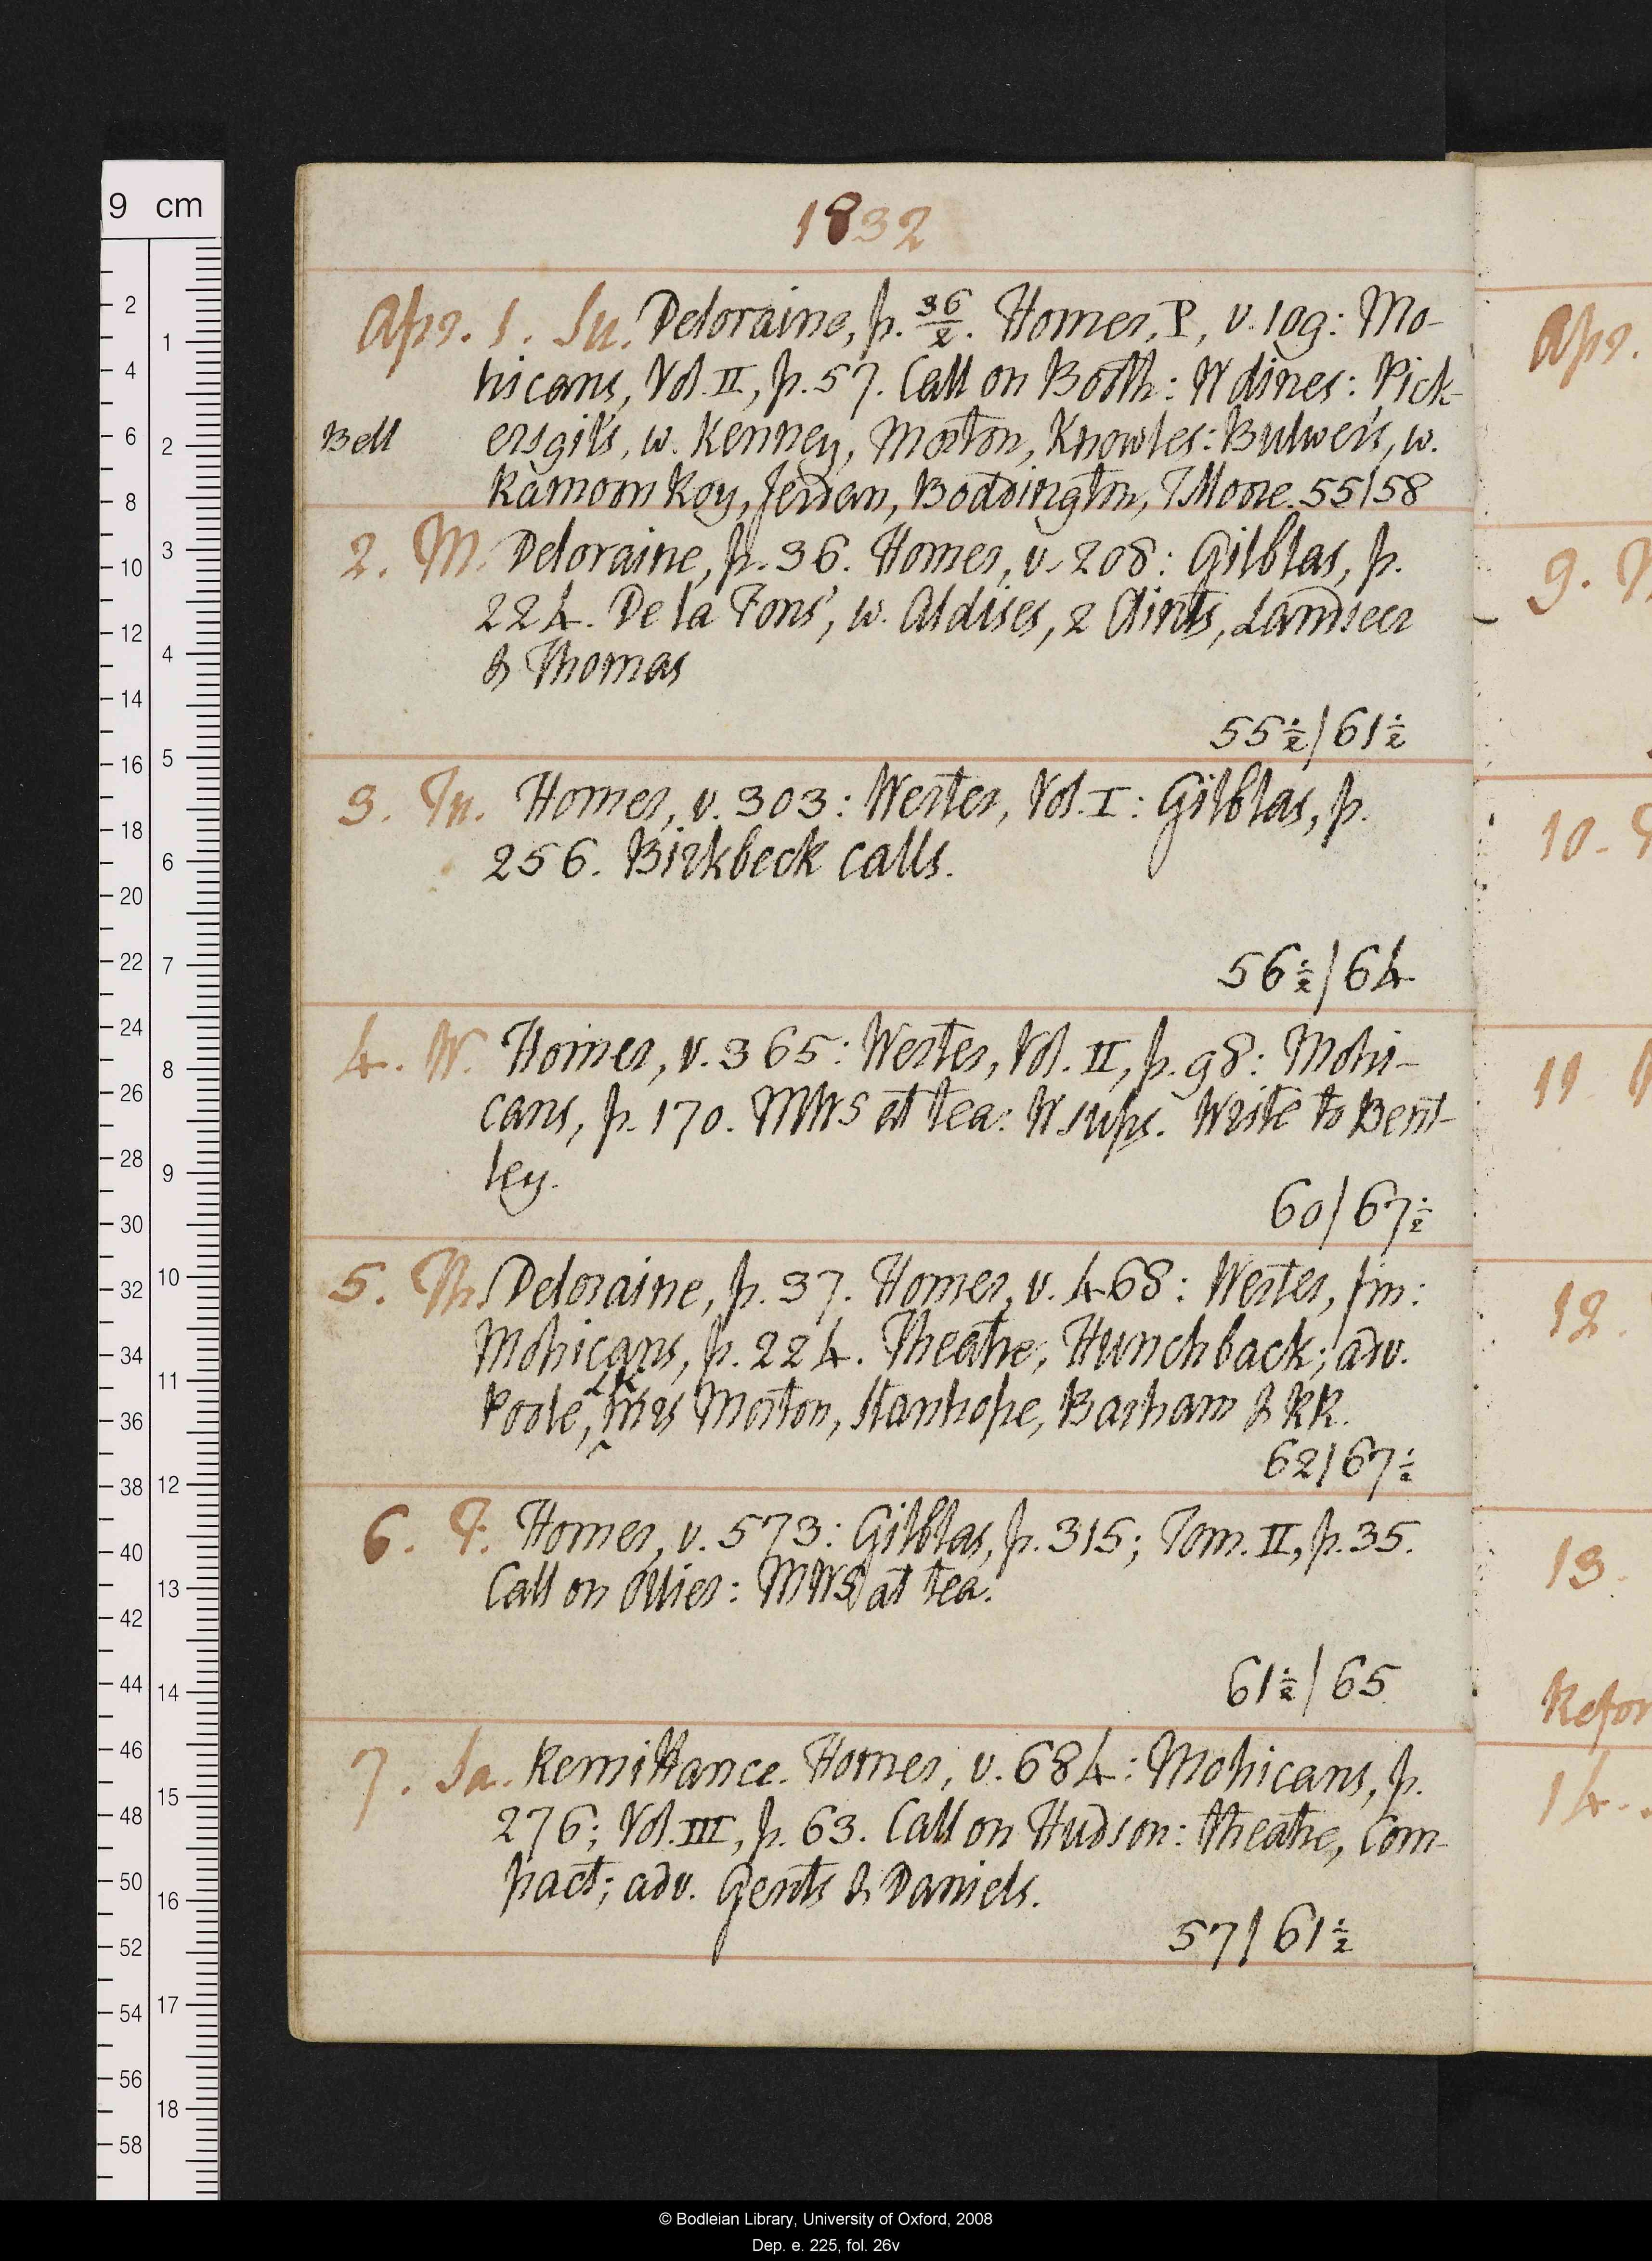 9 cm
1832
Apr. 1. Su. Deloraine, p. 36/2. Homer, P, v. 109: Mo-
hicans, Vol. II, p. 57. Call on Booth: W dines: Pick-
Bell
ersgil's, w. Kenney, Morton, Knowles: Bulwer's, w.
Ramoon Roy, Jerdan, Boddington, TMoore. 55/58
2. M. Deloraine, p. 36. Homer, v. 208: Gilblas, p.
224. De la Fons', w. Aldises, 2 Clints, Landseer
& Thomas
55½/61½
3. Tu. Homer, v. 303: Wester, Vol. I: Gilblas, p.
256. Birkbeck calls.
56½/64
4. W. Homer, v. 365: Wester, Vol. II, p. 98: Mohi-
cans, p. 170. MWS at tea: W sups. Write to Bent-
ley.
60/67½
5. Th. Deloraine, p. 37. Homer, v. 468: Wester, fin:
Mohicans, p. 224. Theatre, Hunchback; adv.
Poole, LK, mrs Morton, Stanhope, Barham & RR.
62/67½
6. F. Homer, v. 573: Gilblas, p. 315; Tom. II, p. 35.
Call on Ollier: MWS at tea.
61½/65
7. Sa. Remittance. Homer, v. 684: Mohicans, p.
276; Vol. III, p. 63. Call on Hudson: theatre, Com-
pact; adv. Gents & Daniels.
57/61½
Apr.
9.
10.
11
12.
13.
Refor
14.
© Bodleian Library, University of Oxford, 2008
Dep. e. 225, fol. 26v